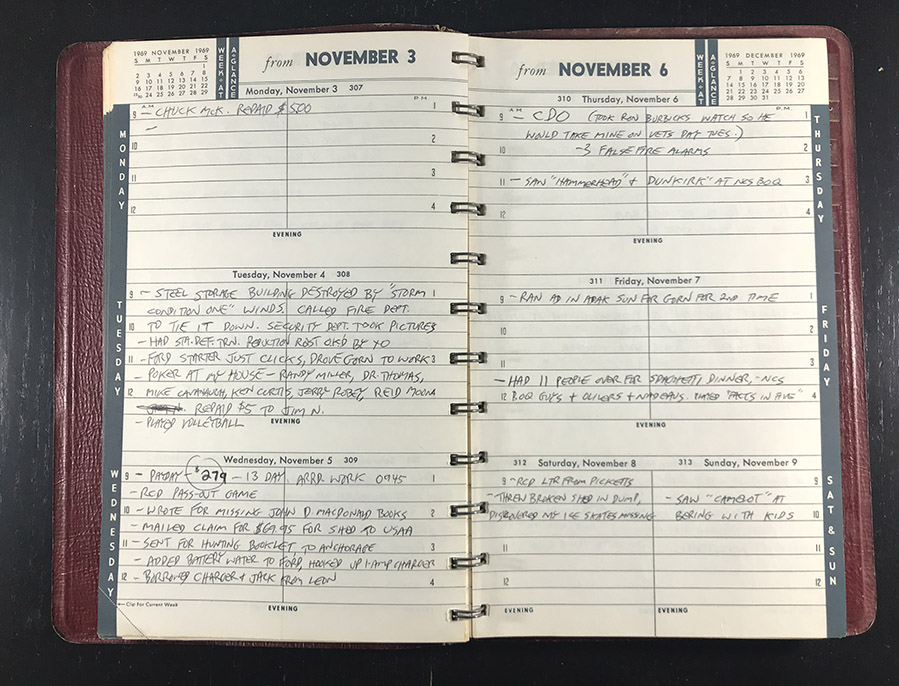 1969 NOVEMBER 1969
S M T W T F S
1
2 3 4 5 6 7 8
9 10 11 12 13 14 15
16 17 18 19 20 21 22
23/30 24 25 26 27 28 29
WEEK•AT
A•GLANCE
from NOVEMBER 3
Monday, November 3 307
A.M. P.M.
9 – CHUCK MCK. REPAID $500 1
–
10 2
11 3
12 4
EVENING
MONDAY
Tuesday, November 4 308
9 – STEEL STORAGE BUILDING DESTROYED BY "STORM 1
CONDITION ONE" WINDS. CALLED FIRE DEPT.
10 TO TIE IT DOWN. SECURITY DEPT. TOOK PICTURES
– HAD STA. DEF. TRN. REDUCTION ROST OK'D BY XO
11 – FORD STARTER JUST CLICKS, DROVE GORN TO WORK 3
– POKER AT MY HOUSE – RANDY MILLER, DR. THOMAS,
12 MIKE CAVANAUGH, KEN CURTIS, JERRY ROBEY, REID
REPAID $5 TO JIM N.
– PLAYED VOLLEYBALL
EVENING
TUESDAY
Wednesday, November 5 309
9 – PAYDAY – $279 – 13 DAY. ARRD WORK 0945 1
– RCD PASS-OUT GAME
10 – WROTE FOR MISSING JOHN D. MACDONALD BOOKS 2
– MAILED CLAIM FOR $69.95 FOR SHED TO USAA
11 – SENT FOR HUNTING BOOKLET TO ANCHORAGE 3
– ADDED BATTERY WATER TO FORD, HOOKED UP 1-AMP CHARGER
12 – BORROWED CHARGER & JACK FROM LEON 4
EVENING
WEDNESDAY
←Clip For Current Week
from NOVEMBER 6
WEEK•AT
A•GLANCE
1969 DECEMBER 1969
S M T W T F S
1 2 3 4 5 6
7 8 9 10 11 12 13
14 15 16 17 18 19 20
21 22 23 24 25 26 27
28 29 30 31
310 Thursday, November 6
A.M. P.M.
9 – CDO (TOOK RON BURBICKS WATCH SO HE 1
WOULD TAKE MINE ON VETS DAY TUES.)
10 – 3 FALSE FIRE ALARMS 2
11 – SAW "HAMMERHEAD" & DUNKIRK" AT NCS BOQ 3
12 4
EVENING
THURSDAY
311 Friday, November 7
9 – RAN AD IN ADAK SUN FOR GORN FOR 2ND TIME 1
10 2
11 3
– HAD 11 PEOPLE OVER FOR SPAGHETTI DINNER, – NCS
12 BOQ GUYS & OLIVERS & NADEAUS. PLAYED "FACTS IN FIVE" 4
EVENING
FRIDAY
312 Saturday, November 8
9 – RCD LTR FROM PICKETTS
– THREW BROKEN SHED IN DUMP,
DISCOVERED MY ICE SKATES MISSING
11
12
EVENING
313 Sunday, November 9
9
– SAW "CAMELOT" AT
BERING WITH KIDS 10
11
12
EVENING
SAT & SUN